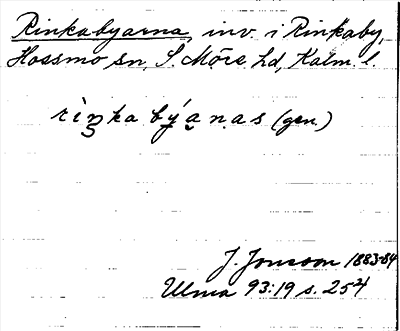 Rinkabyarna, inv. i Rinkaby,
Hossmo sn, S. Möre hd, Kalm. l.
rìn̢ka býa̤n̤as (gen.)
J. Jonsson 1883-84
Ulma 93:19 s. 254